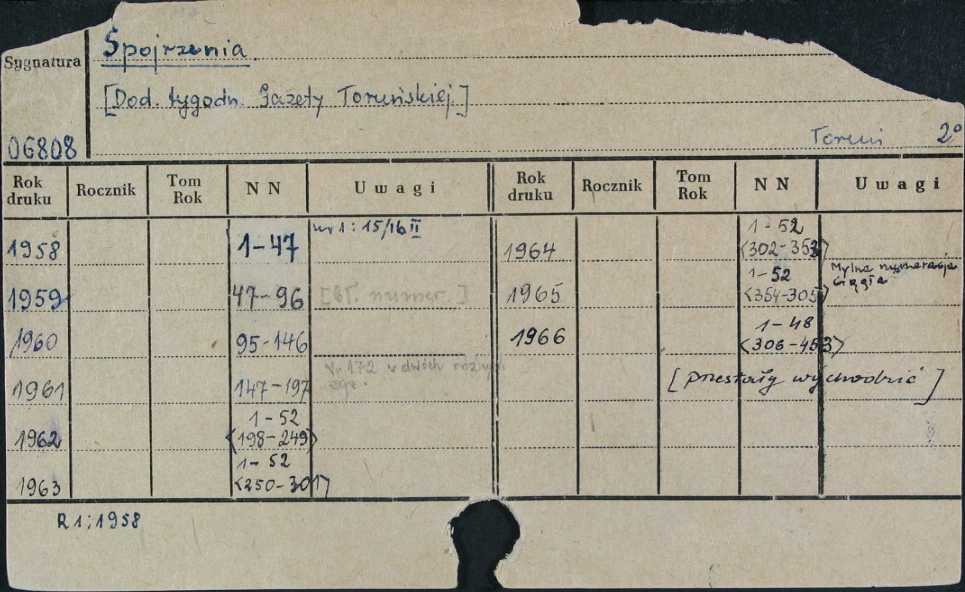 Sygnatura
Spojrzenia
[Dod. tygodn. Gazety Toruńskiej.]
06808
Toruń 2°
Rok druku Rocznik Tom Rok NN Uwagi Rok druku Rocznik Tom Rok NN Uwagi
1958 1-47 nr 1: 15/16 II
1959 47-96 [bł. numer.]
1960 95-146
1961 147-197 Nr 172 w dwóch egz.
1962 1-52 <198-249>
1963 1-52 <250-301>
1964 1-52 <302-353>
1965 1-52 <354-305> Mylna numeracja ciągła
1966 1-48 <306-453>
[przestały wychodzić]
R 1: 1958